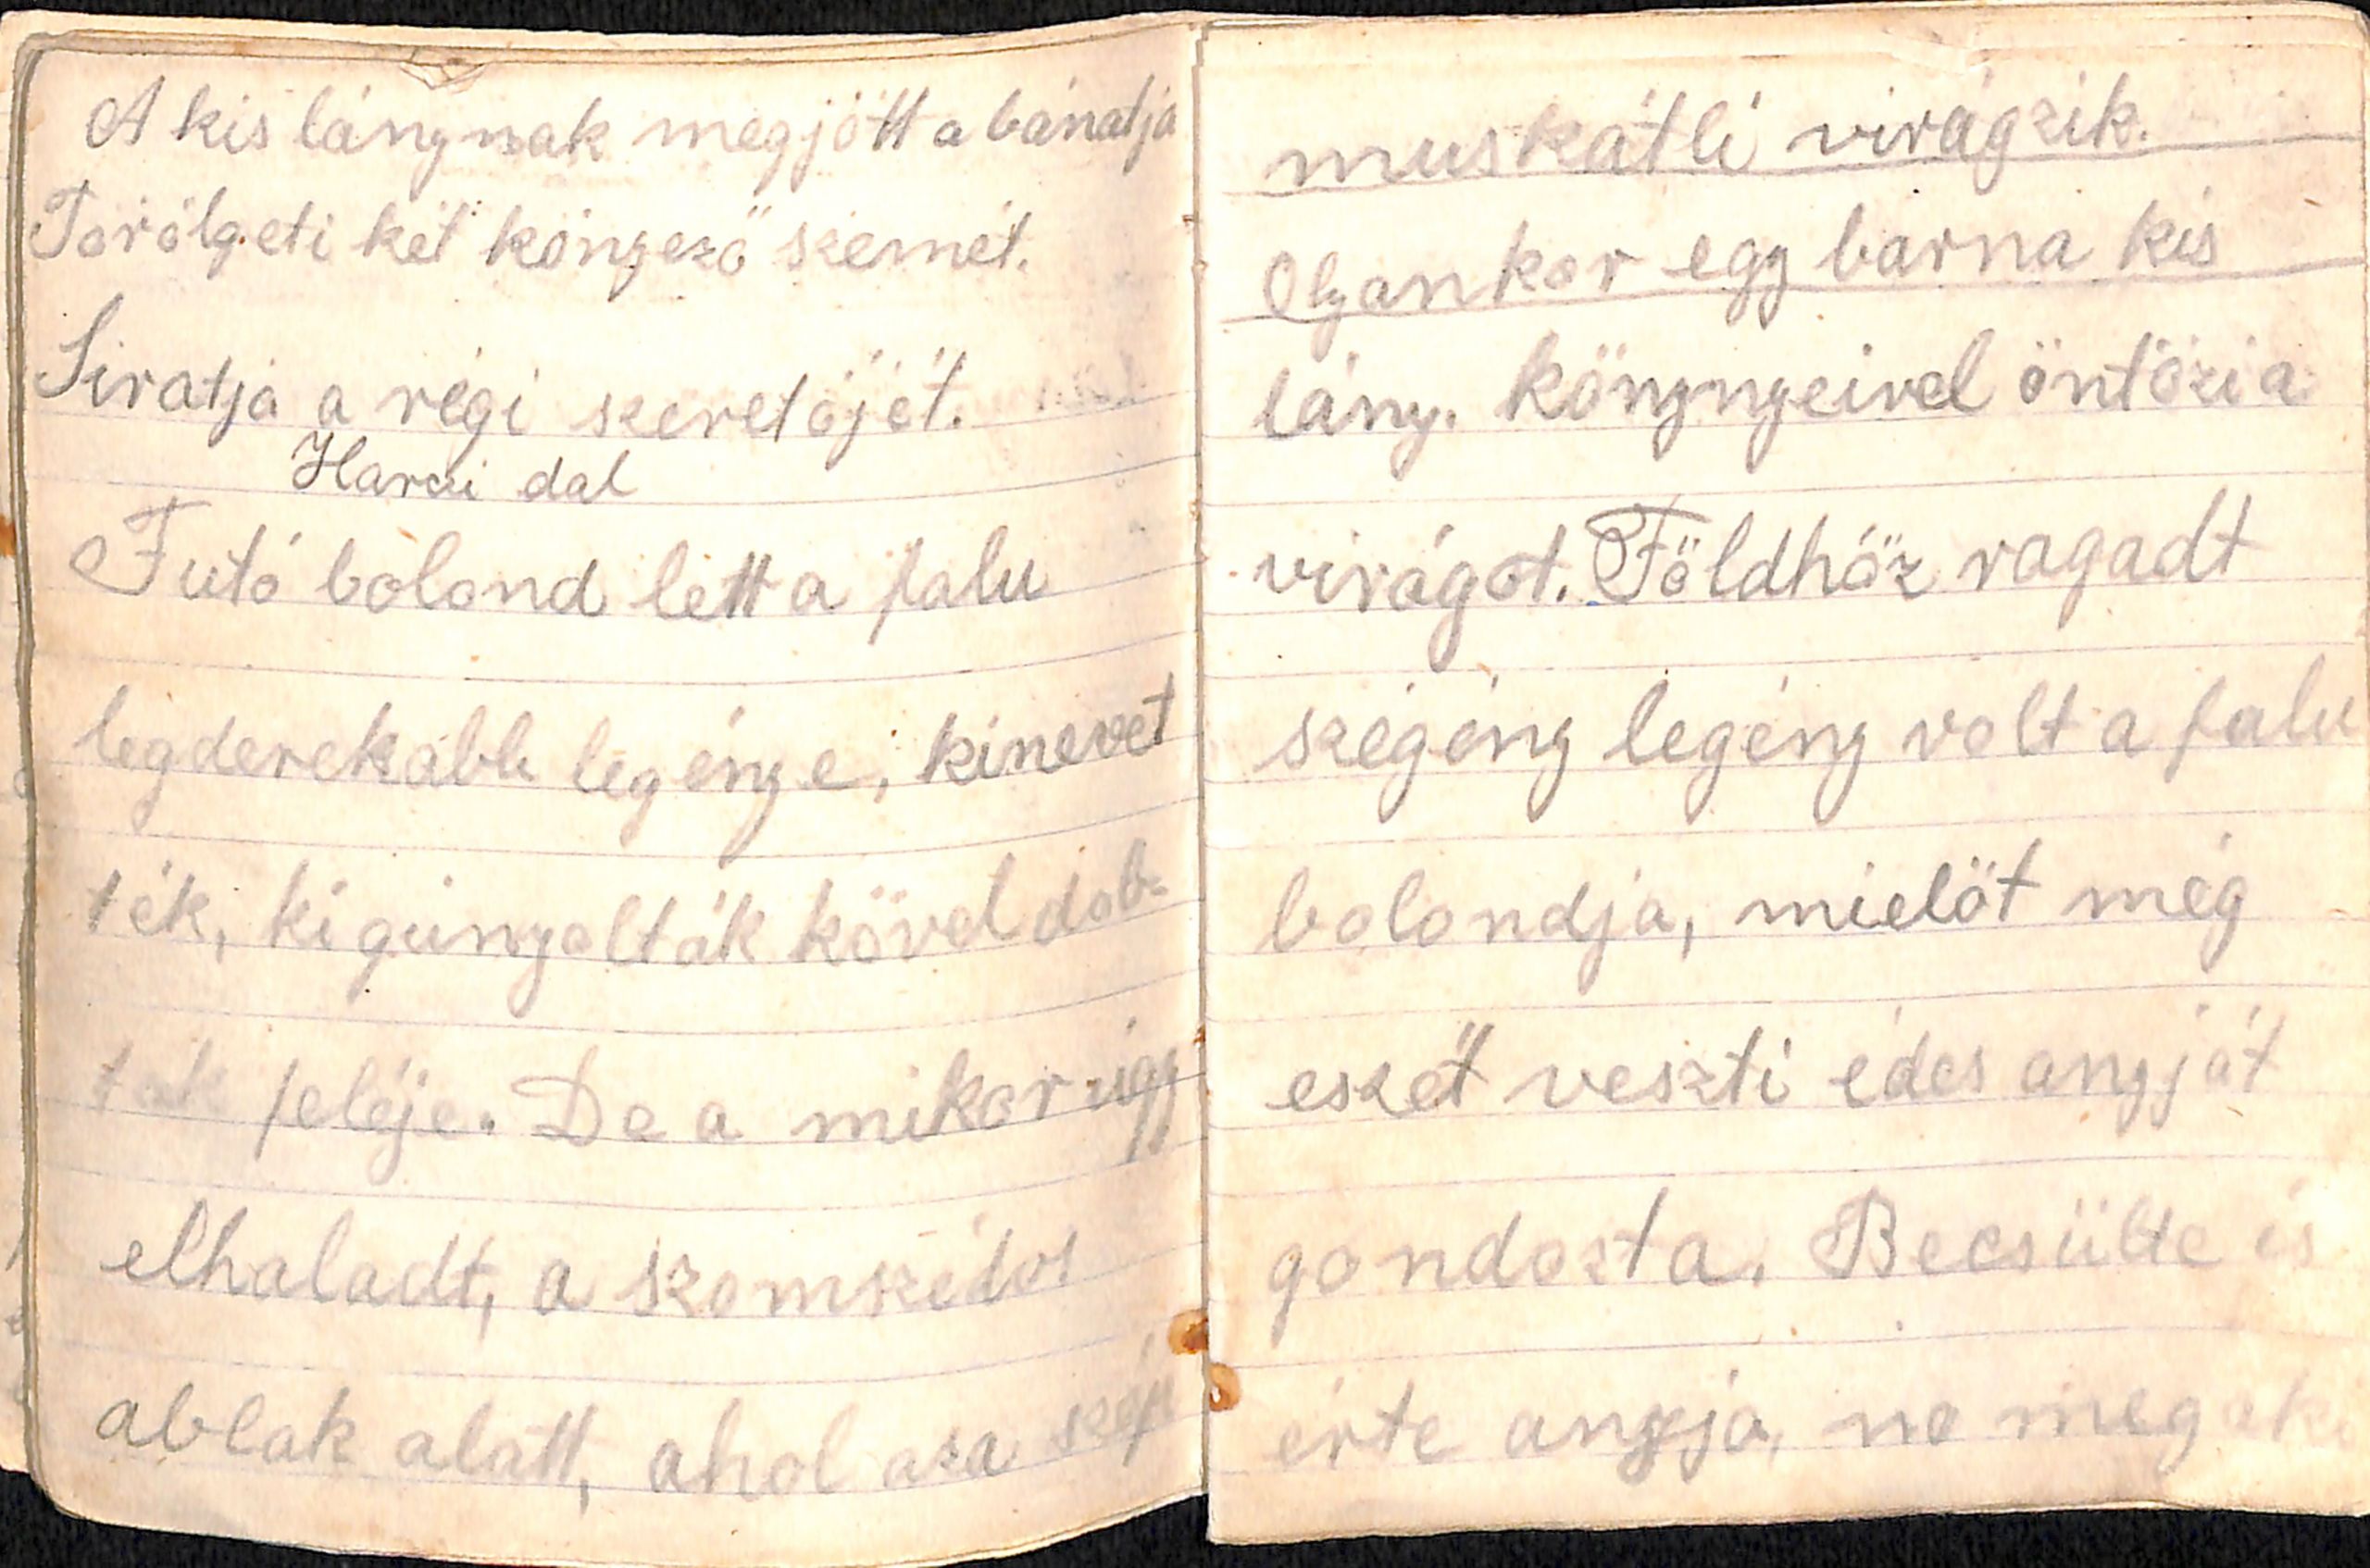 A kis lánynak megjött a bánatja
Törölgeti két könyező szemét.
Siratja a régi szeretőjét.
Harci dal
Futó bolond lett a falu
legderekabb legénye, kinevet
ték, kigúnyolták kövel dob-
tak feléje. De a mikor úgy
elhaladt, a szomszédos
ablak alatt, ahol aza szép
muskátli virágzik.
Olyankor egy barna kis
lány. könynyeivel öntözi a
virágot. Földhöz ragadt
szegény legény volt a falu
bolondja, mielöt még
eszét veszti édes anyját
gondozta. Becsülte is
érte anyja, no meg